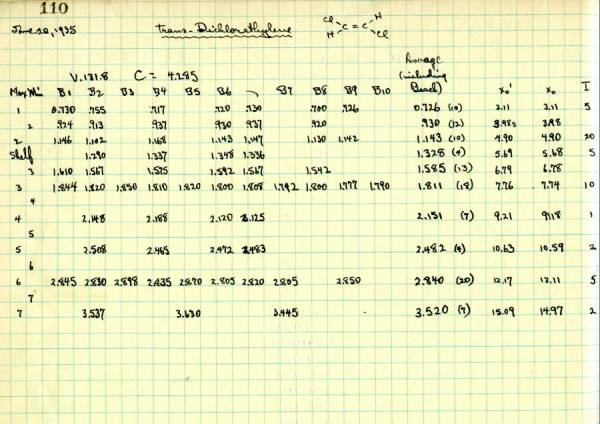 110
June 20, 1935 trans-Dichlorethylene Cl H C = C H Cl
V.131.8 C = 4.285 Average (including Beach)
Max Min B1 B2 B3 B4 B5 B6 B7 B8 B9 B10 x₀' x₀ I
1 0.730 .755 .717 .720 .730 .700 .726 0.726 (10) 3.11 3.11 5
2 .924 .913 .937 .930 .937 .920 .930 (12) 3.985 3.98
2 1.146 1.102 1.168 1.143 1.147 1.130 1.142 1.143 (10) 4.90 4.90 20
Shelf 1.290 1.337 1.348 1.336 1.328 (4) 5.69 5.68 5
3 1.610 1.567 1.575 1.592 1.567 1.542 1.585 (13) 6.79 6.78
3 1.844 1.820 1.850 1.810 1.820 1.800 1.808 1.792 1.800 1.777 1.790 1.811 (18) 7.76 7.74 10
4
4 2.148 2.188 2.120 2.125 2.151 (7) 9.21 9.18 1
5
5 2.508 2.465 2.472 2.483 2.482 (8) 10.63 10.59 2
6
6 2.845 2.830 2.898 2.835 2.870 2.805 2.820 2.805 2.850 2.840 (20) 12.17 12.11 5
7
7 3.537 3.630 3.445 3.520 (7) 15.09 14.97 2